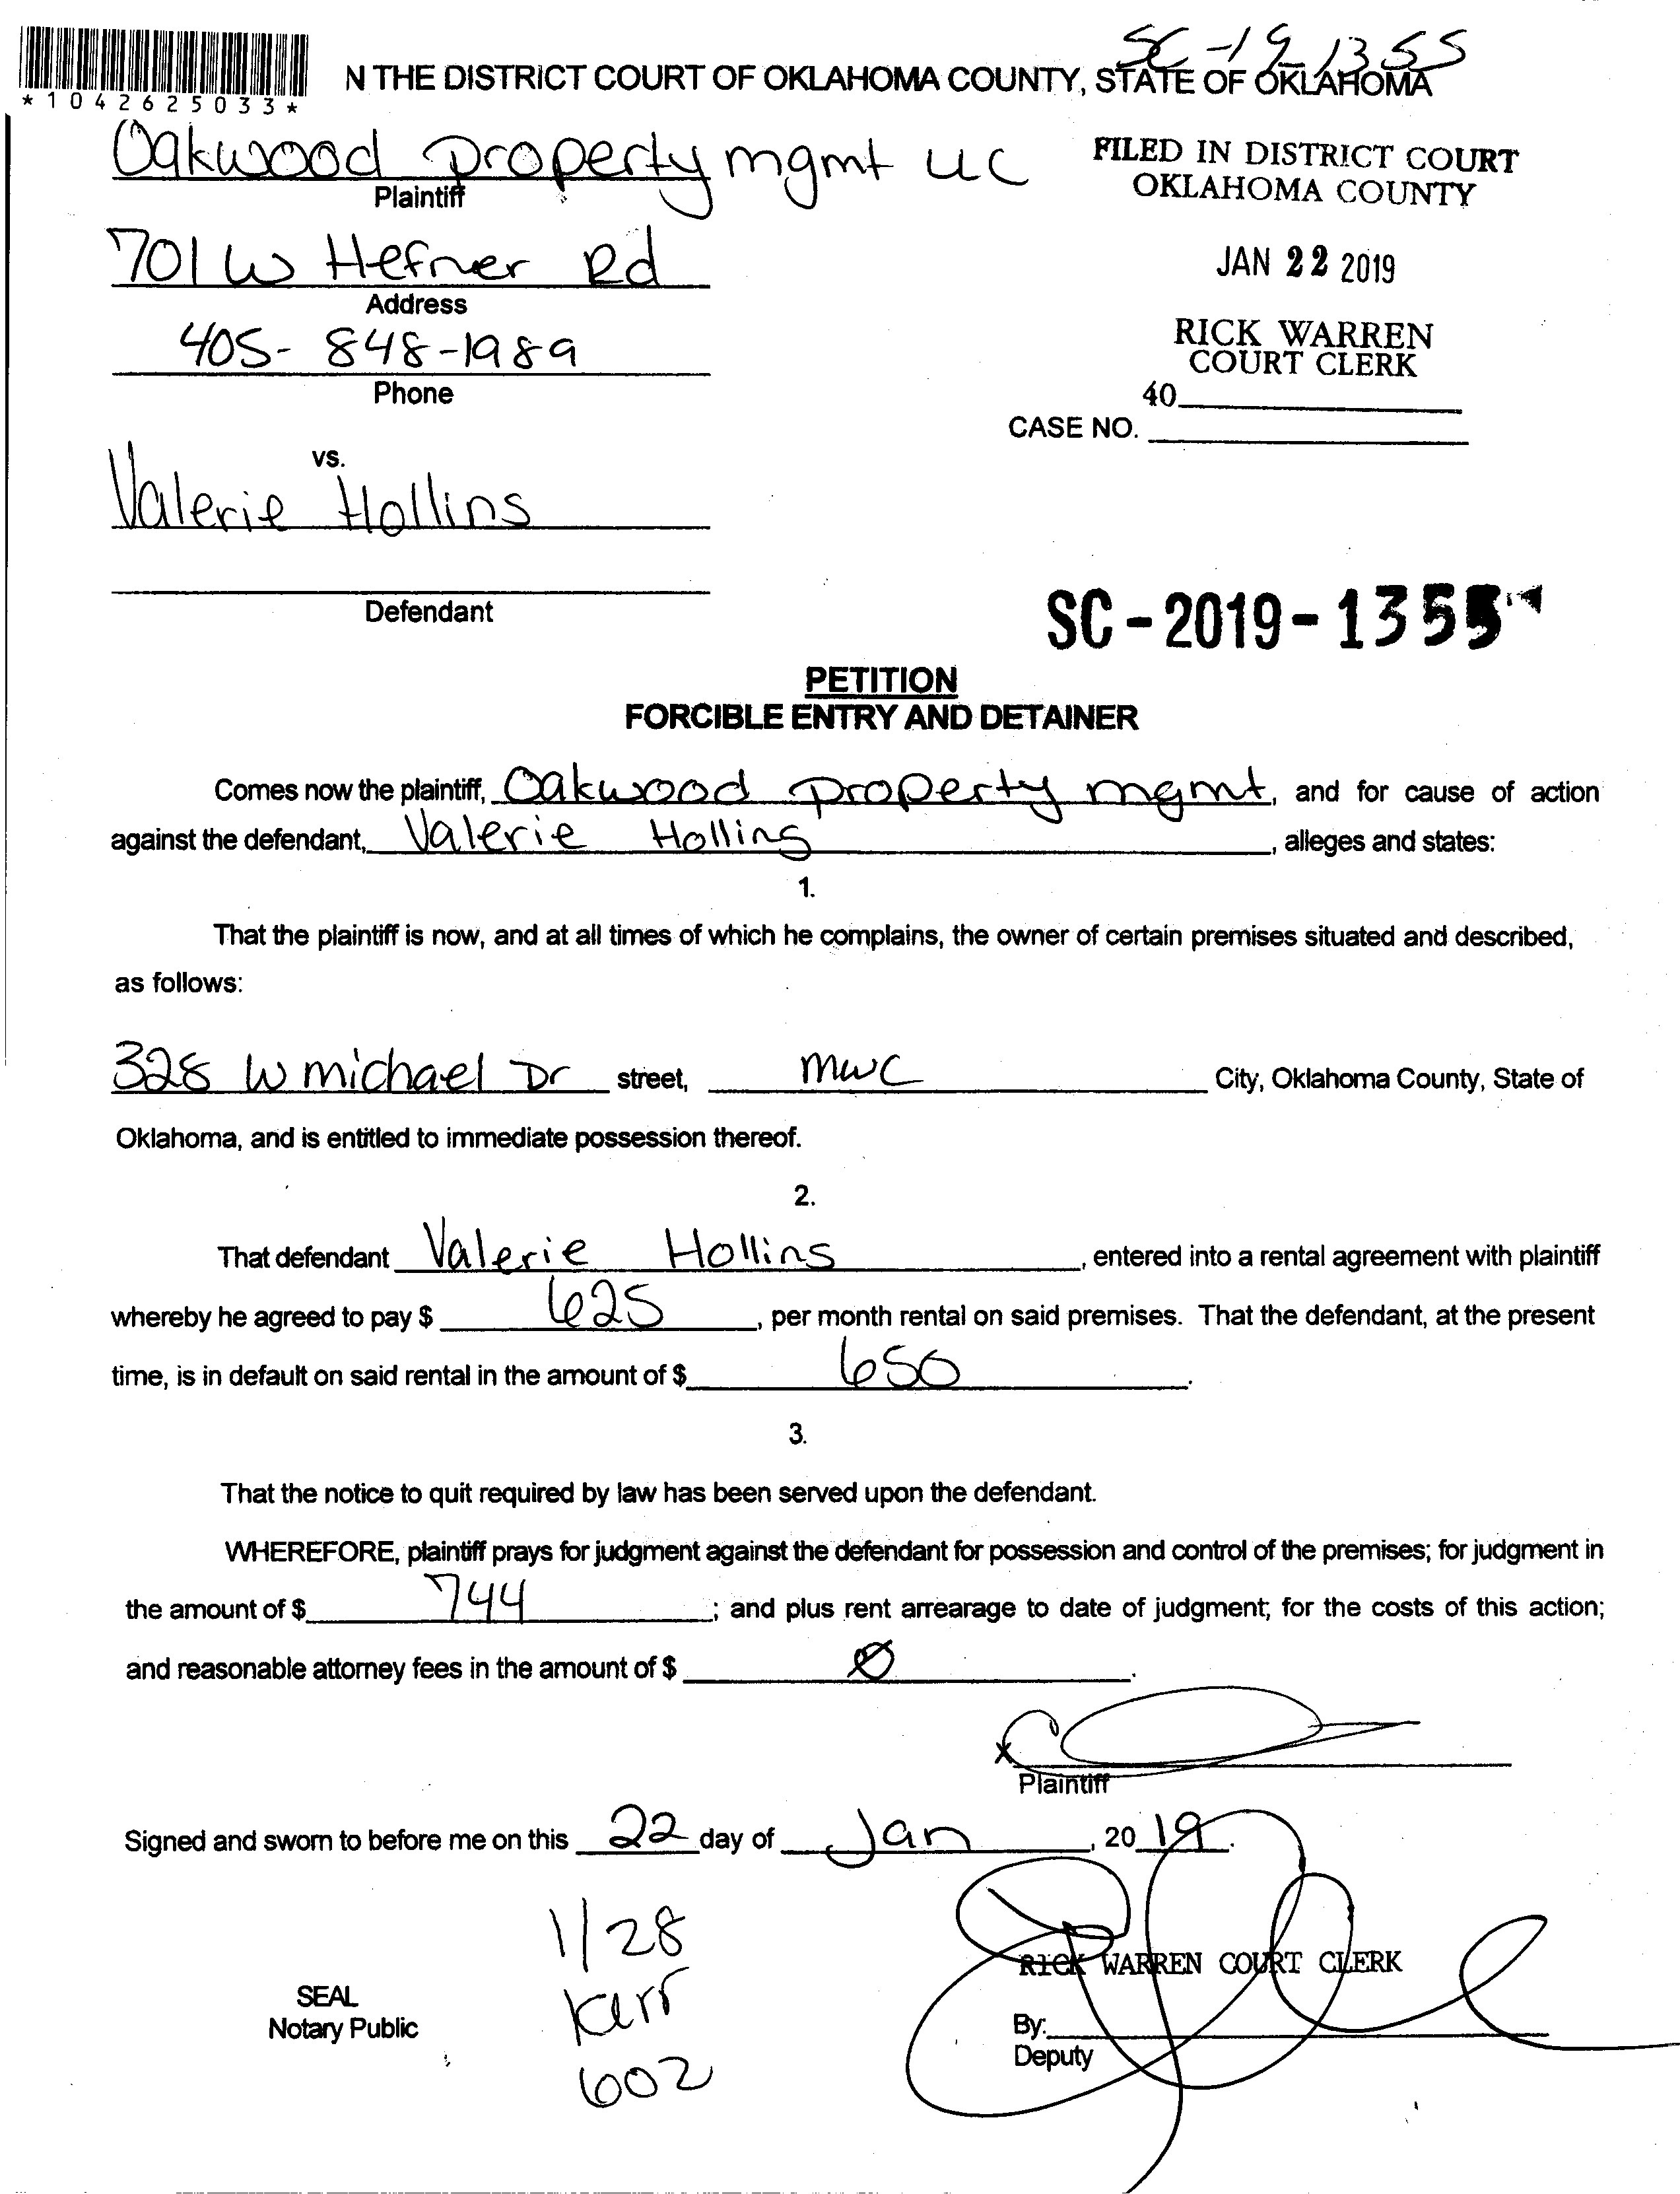 SC-19-1355
*1042625033*
N THE DISTRICT COURT OF OKLAHOMA COUNTY, STATE OF OKLAHOMA
Oakwood property mgmt LLC
Plaintiff
FILED IN DISTRICT COURT
OKLAHOMA COUNTY
701 W Hefner Rd
Address
JAN 22 2019
405-848-1989
Phone
RICK WARREN
COURT CLERK
40
CASE NO.
vs.
Valerie Hollins
Defendant
SC-2019-1355
PETITION
FORCIBLE ENTRY AND DETAINER
Comes now the plaintiff, Oakwood property mgmt, and for cause of action
against the defendant, Valerie Hollins, alleges and states:
1.
That the plaintiff is now, and at all times of which he complains, the owner of certain premises situated and described,
as follows:
328 W michael Dr street, mwc City, Oklahoma County, State of
Oklahoma, and is entitled to immediate possession thereof.
2.
That defendant Valerie Hollins, entered into a rental agreement with plaintiff
whereby he agreed to pay $ 625, per month rental on said premises. That the defendant, at the present
time, is in default on said rental in the amount of $ 650.
3.
That the notice to quit required by law has been served upon the defendant.
WHEREFORE, plaintiff prays for judgment against the defendant for possession and control of the premises; for judgment in
the amount of $ 744; and plus rent arrearage to date of judgment; for the costs of this action;
and reasonable attorney fees in the amount of $ 0.
x
Plaintiff
Signed and sworn to before me on this 22 day of Jan, 2019.
1/28
Kerr
602
SEAL
Notary Public
RICK WARREN COURT CLERK
By:
Deputy